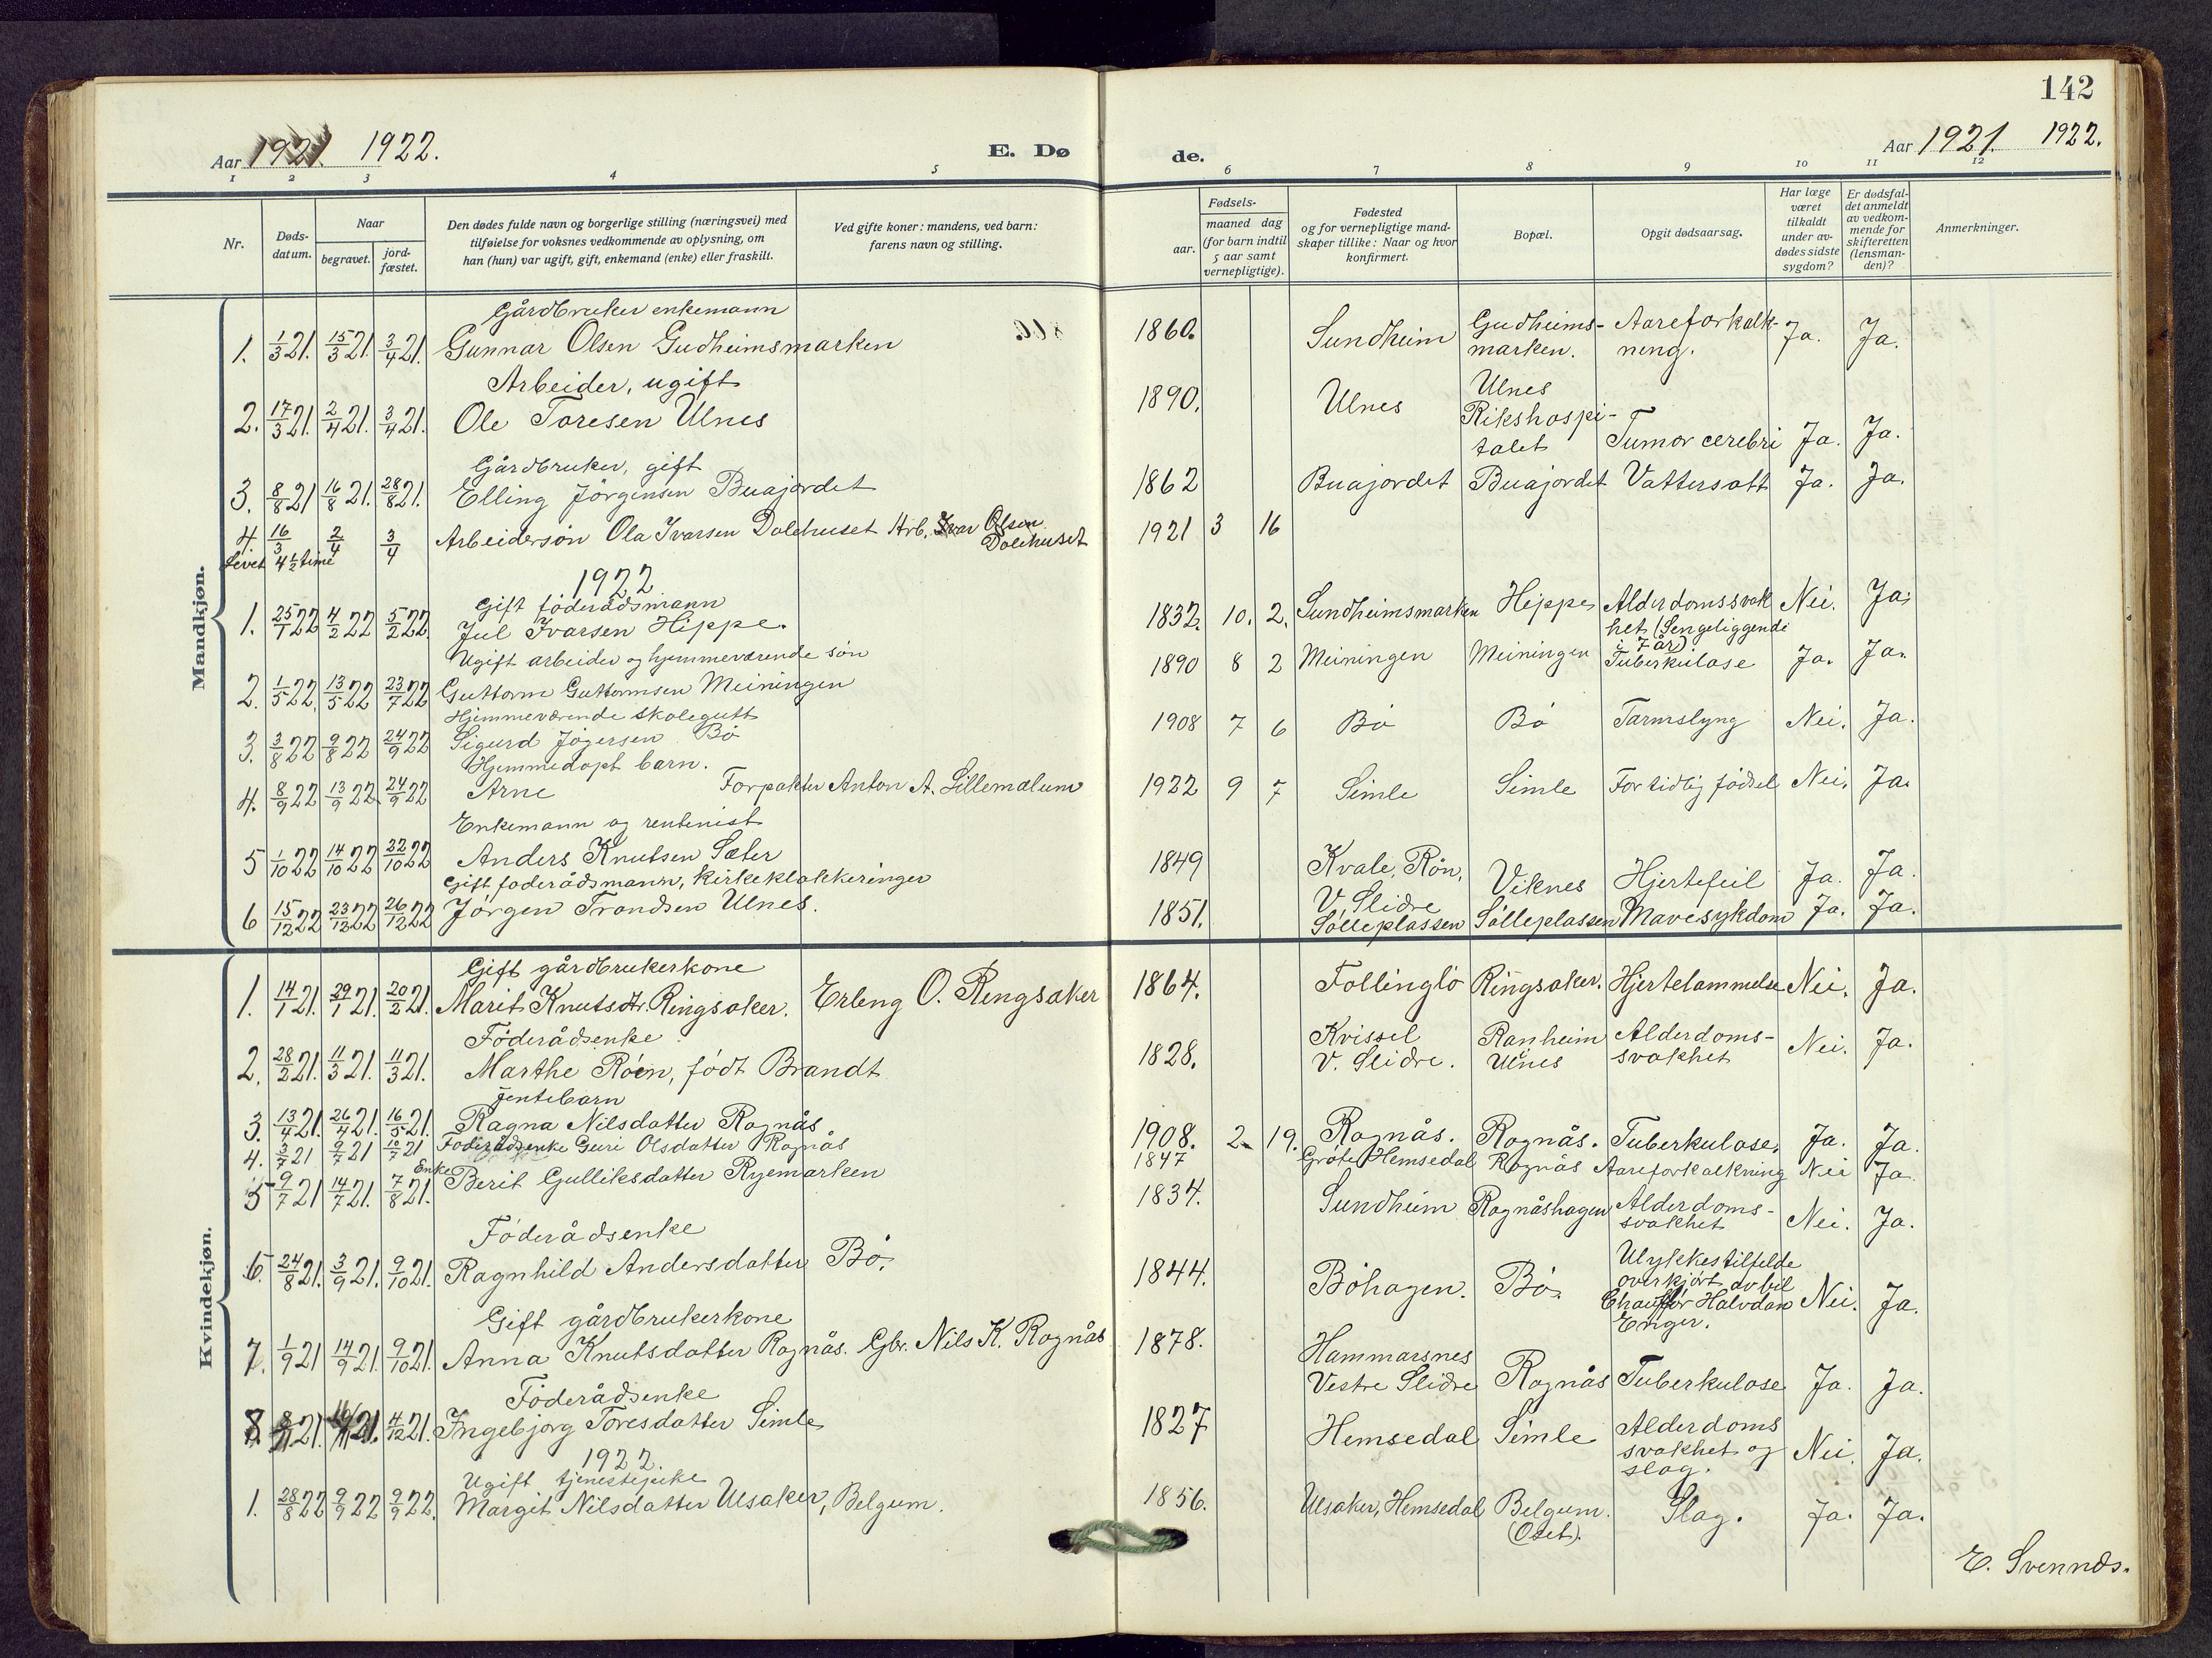 142
Aar 1921. 1922.
E. Dø
de.
Aar 1921. 1922.
1 2 3 4 5 6 7 8 9 10 11 12
Nr.
Døds-
datum.
Naar
begravet.
jord-
fæstet.
Den dødes fulde navn og borgerlige stilling (næringsvei) med
tilføielse for voksnes vedkommende av oplysning, om
han (hun) var ugift, gift, enkemand (enke) eller fraskilt.
Ved gifte koner: mandens, ved barn:
farens navn og stilling.
Fødsels-
aar.
maaned dag
(for barn indtil
5 aar samt
vernepligtige).
Fødested
og for vernepligtige mand-
skaper tillike: Naar og hvor
konfirmert.
Bopæl.
Opgit dødsaarsag.
Har læge
været
tilkaldt
under av-
dødes sidste
sygdom?
Er dødsfal-
det anmeldt
av vedkom-
mende for
skifteretten
(lensman-
den)?
Anmerkninger.
Mandkjøn.
Gårdbruker enkemann
1. 1/3 21. 15/3 21. 3/4 21. Gunnar Olsen Gudheimsmarken 1860. Sundheim Gudheims-
marken. Aareforkalk-
ning. Ja. Ja.
Arbeider, ugift
2. 17/3 21. 2/4 21. 3/4 21. Ole Toresen Ulnes 1890. Ulnes Ulnes
Rikshospi-
talet Tumor cerebri Ja. Ja.
Gårdbruker, gift
3. 8/8 21 16/8 21. 28/8 21. Elling Jörgensen Buajordet 1862 Buajordet Buajordet Vattersott Ja. Ja.
4. 16/3 2/4 3/4 Arbeidersön Ola Ivarsen Dalehuset Arb. Ivar Olsen
Dalehuset 1921 3 16
Levet 4 1/2 time
1922
Gift föderådsmann
1. 25/1 22 4/2 22 5/2 22 Jul Ivarsen Hippe. 1832. 10. 2. Sundheimsmarken Hippe Alderdomssvak
het (Sengeliggende
i 7 år) Nei. Ja.
Ugift arbeider og hjemmeværende sön
2. 1/5 22. 13/5 22 23/7 22 Guttorm Guttormsen Meiningen 1890 8 2 Meiningen Meiningen Tuberkulose Ja. Ja.
Hjemmeværende skolegutt
3. 3/8 22 9/8 22 24/9 22 Sigurd Jögersen Bö 1908 7 6 Bö Bö Tarmslyng Nei. Ja.
Hjemmedöpt barn.
4. 8/9 22 13/9 22 24/9 22 Arne Forpakter Anton A. Lillemælum 1922 9 7 Simle Simle For tidlig födsel Nei. Ja.
Enkemann og rentenist
5 1/10 22 14/10 22 22/10 22 Anders Knutsen Sæter 1849 Kvale, Rön,
V. Slidre Viknes Hjertefeil Ja. Ja.
Gift föderådsmann, kirkeklokkeringer
6 15/12 22 23/12 22 26/12 22 Jörgen Trondsen Ulnes. 1851. Sölleplassen Sölleplassen Mavesykdom Ja. Ja.
Kvindekjøn.
Gift gårdbrukerkone
1. 14/1 21. 29/1 21. 20/2 21. Marit Knutsdtr. Ringsaker. Erling O. Ringsaker 1864. Follinglö Ringsaker. Hjertelammelse Nei. Ja.
Föderådsenke
2. 28/2 21. 11/3 21. 11/3 21. Marthe Röen, födt Brandt 1828. Kvissel
V. Slidre. Ranheim
Ulnes Alderdoms-
svakhet Nei. Ja.
Jentebarn
3. 13/4 21. 26/4 21. 16/5 21. Ragna Nilsdatter Rognås 1908. 2. 19. Rognås. Rognås. Tuberkulose. Ja. Ja.
4. 3/7 21 9/7 21 10/7 21 Föderådsenke Guri Olsdatter Rognås 1847 Gröte, Hemsedal Rognås Aareforkalkning Nei Ja.
5 9/7 21 14/7 21. 7/8 21. Enke Berit Gulliksdatter Ryemarken 1834. Sundheim Rognåshagen Alderdoms-
svakhet Nei. Ja.
Föderådsenke
6. 24/8 21. 3/9 21. 9/10 21. Ragnhild Andersdatter Bö. 1844. Böhagen. Bö. Ulykkestilfelde
overkjört av bil
Chaufför Halvdan
Enger. Nei. Ja.
Gift gårdbrukerkone
7. 1/9 21 14/9 21. 9/10 21. Anna Knutsdatter Rognås. Gbr. Nils K. Rognås 1878. Hammarsnes
Vestre Slidre Rognås Tuberkulose Ja. Ja.
Föderådsenke
8. 8/11 21. 21. 4/12 21. Ingebjorg Toresdatter Simle 1827 Hemsedal Simle Alderdoms
svakhet og
slag. Nei. Ja.
1922.
Ugift tjenestepike
1. 28/8 22 9/9 22 9/9 22. Margit Nilsdatter Ulsaker, Belgum. 1856. Ulsaker, Hemsedal Belgum.
(Oset). Slag. Ja. Ja.
E. Svennds.